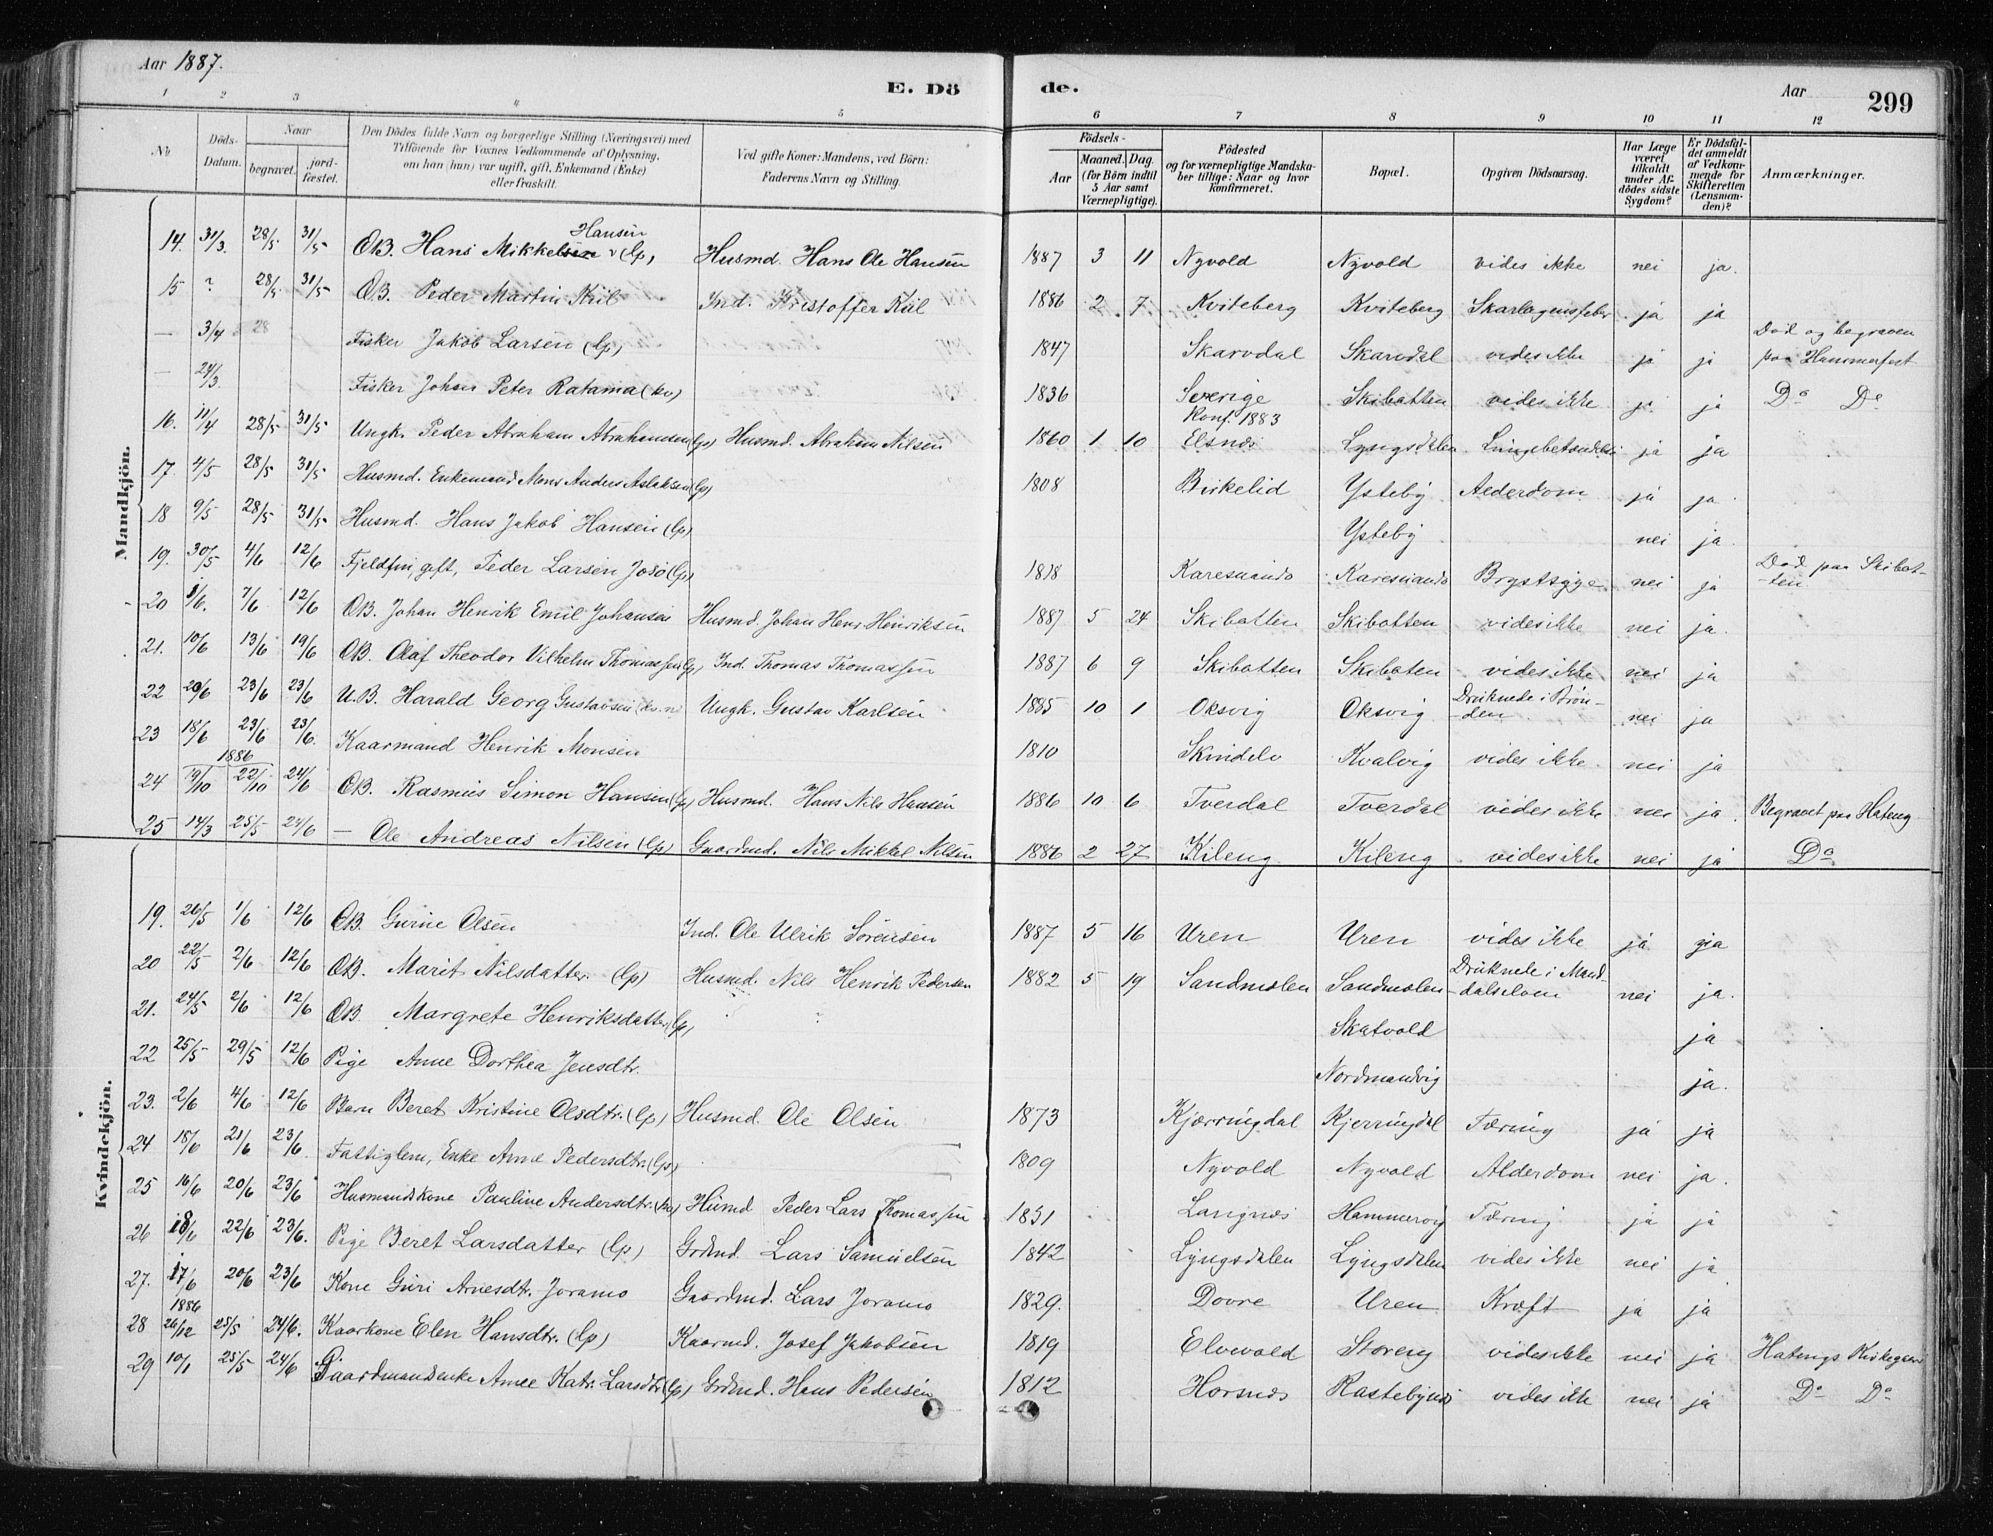 Aar 1887. E. Dö de. Aar 299
1 2 3 4 5 6 7 8 9 10 11 12
No Döds-Datum. Naar begravet. jord-fæstet. Den Dödes fulde Navn og borgerlige Stilling (Næringsvei) med Tilföiende for Voxnes Vedkommende af Oplysning, om han (hun) var ugift, gift, Enkemand (Enke) eller fraskilt. Ved gifte Koner: Mandens, ved Börn: Faderens Navn og Stilling. Födsels- Aar Maaned. Dag. (for Börn indtil 5 Aar samt Værnepligtige). Födested og for værnepligtige Mandska-ber tillige: Naar og hvor Konfirmeret. Bopæl. Opgiven Dödsaarsag. Har Læge været tilkaldt under Af-dödes sidste Sygdom? Er Dödsfal-det anmeldt af Vedkom-mende for Skifteretten (Lensman-den)? Anmærkninger.
Mandkjön.
14. 31/3. 28/5 31/5 ÆB. Hans Mikkelsen Hansen (lp) Husmd. Hans Ole Hansen 1887 3 11 Nyvold Nyvold vides ikke nei ja.
15 ? 28/5 31/5 ÆB. Peder Martin Kiil Ind. Kristoffer Kiil 1886 2 7 Kviteberg Kviteberg Skarlagensfeber ja ja
— 3/4 28 Fisker Jakob Larsen (lp) 1847 Skarvdal Skarvdal vides ikke ja ja Död og begraven paa Hammerfest
— 24/3 Fisker Johan Peter Ratama (kv) 1836 Sverige Skibotten vides ikke ja ja Do Do
16. 11/4 28/5 31/5 Ungk. Peder Abraham Abrahamsen (lp) Husmd. Abraham Nilsen 1860 1 10 Konf. 1883 Elsnæs Lyngsdalen Lungebetændelse ja ja
17. 4/5 28/5 31/5 Husmd. Enkemand Mons Anders Aslaksen (lp) 1808 Birkelid Ysteby Alderdom ja ja
18 9/5 28/5 31/5 Husmd. Hans Jakob Hansen (lp) Ysteby nei ja.
19. 30/5 4/6 12/6 Fjeldfin, gift, Peder Larsen Joso (lp) 1818 Karesuando Karesuando Brystsyge nei ja Död paa Skibot-ten
20 1/6. 7/6 12/6 ÆB. Johan Henrik Emil Johansen Husmd. Johan Henr Henriksen 1887 5 24 Skibotten Skibotten vides ikke nei ja.
21. 10/6 13/6 19/6 ÆB. Olaf Theodor Vilhelm Thomassen (lp) Ind. Thomas Thomassen 1887 6 9 Skibotten Skiboten vides ikke nei ja
22 20/6 23/6 23/6 U.B. Harald Georg Gustavsen (kv. n) Ungk. Gustav Karlsen 1885 10 1 Oksvig Oksvig Druknede i Brön-den nei ja
23 18/6 23/6 23/6. Kaarmand Henrik Monsen 1810 Skindelv Kvalvig vides ikke. nei ja
1886
24 19/10 22/10 24/6 ÆB. Rasmus Simon Hansen (lp) Husmd. Hans Nils Hansen 1886 10 6 Tverdal Tverdal vides ikke nei ja. Begravet paa Hateng
25 14/3 25/5 24/6 — Ole Andreas Nilsen (lp) Gaardmd. Nils Mikkel Nilsen 1886 2 27 Kileng Kileng vides ikke nei ja Do
Kvindekjön.
19. 26/5 1/6 12/6 ÆB. Gurine Olsen Ind. Ole Ulrik Sörensen 1887 5 16 Uren Uren vides ikke ja ja
20 22/5 2/6 12/6 ÆB. Marit Nilsdatter (lp) Husmd. Nils Henrik Pedersen 1882 5 19 Sandmolen Sandmolen Druknede i Mand-dalselven nei ja.
21. 24/5 2/6 12/6 ÆB. Margrete Henriksdatter (lp) Skatvold ja
22 25/5 29/5 12/6 Pige Anne Dorthea Jensdtr. Nordmandvig ja.
23. 2/6 4/6 12/6 Barn Beret Kristine Olsdtr. (lp) Husmd. Ole Olsen 1873 Kjærringdal Kjerringdal Tæring ja ja
24 18/6 21/6 23/6. Fattiglem, Enke Anne Pedersdtr. (lp) 1809 Nyvold Nyvold Alderdom nei ja.
25 16/6 20/6 23/6 Husmandskone Pauline Andersdtr. (kv) Husmd Peder Lars Thomassen 1851 Langnæs Hammervig Tæring ja ja
26 18/6 22/6 23/6. Pige Beret Larsdatter (lp) Grdmd. Lars Samuelsen 1842 Lyngsdalen Lyngsdalen vides ikke nei ja
27. 17/6 20/6 23/6 Kone Guri Arnesdtr. Joramo Gaardmd. Lars Joramo 1829. Dovre Uren Kræft ja ja
1886
28 26/12 25/5 24/6. Kaarkone Elen Hansdtr. (lp) Kaarmd. Josef Jakobsen 1819 Elvevold Storeng vides ikke nei ja Hatengs Kirkegaard
29 10/1 25/5 24/6 Gaardmandsenke Anne Katr. Larsdtr. (lp) Grdmd. Hans Pedersen 1812 Horsnæs Rastebynæs vides ikke nei ja Do Do